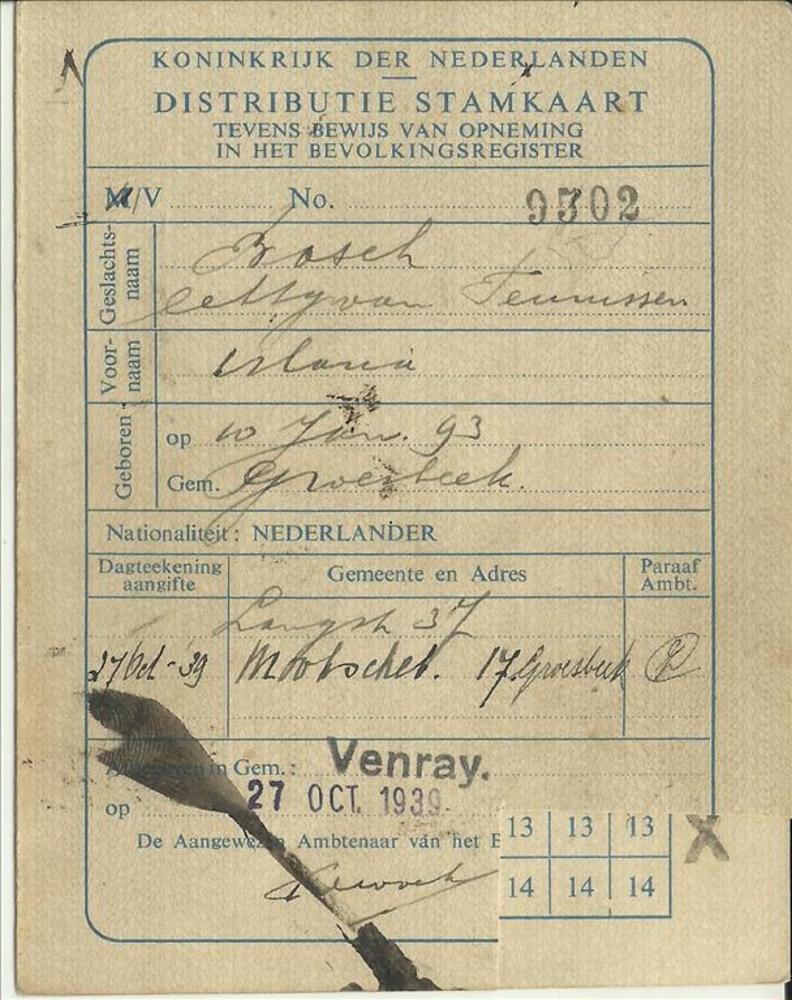 KONINKRIJK DER NEDERLANDEN
DISTRIBUTIE STAMKAART
TEVENS BEWIJS VAN OPNEMING
IN HET BEVOLKINGSREGISTER
M/V No. 9302
Geslachtsnaam Bosch
van Teunissen
Voornaam Maria
Geboren op 10 Jan. 93
Gem. Groesbeek.
Nationaliteit: NEDERLANDER
Dagteekening aangifte Gemeente en Adres Paraaf Ambt.
Langstr 37
27 Oct - 39 17 Groesbeek
in Gem.: Venray.
op 27 OCT. 1939
De Aangewezen Ambtenaar van het B
13 13 13 X
14 14 14